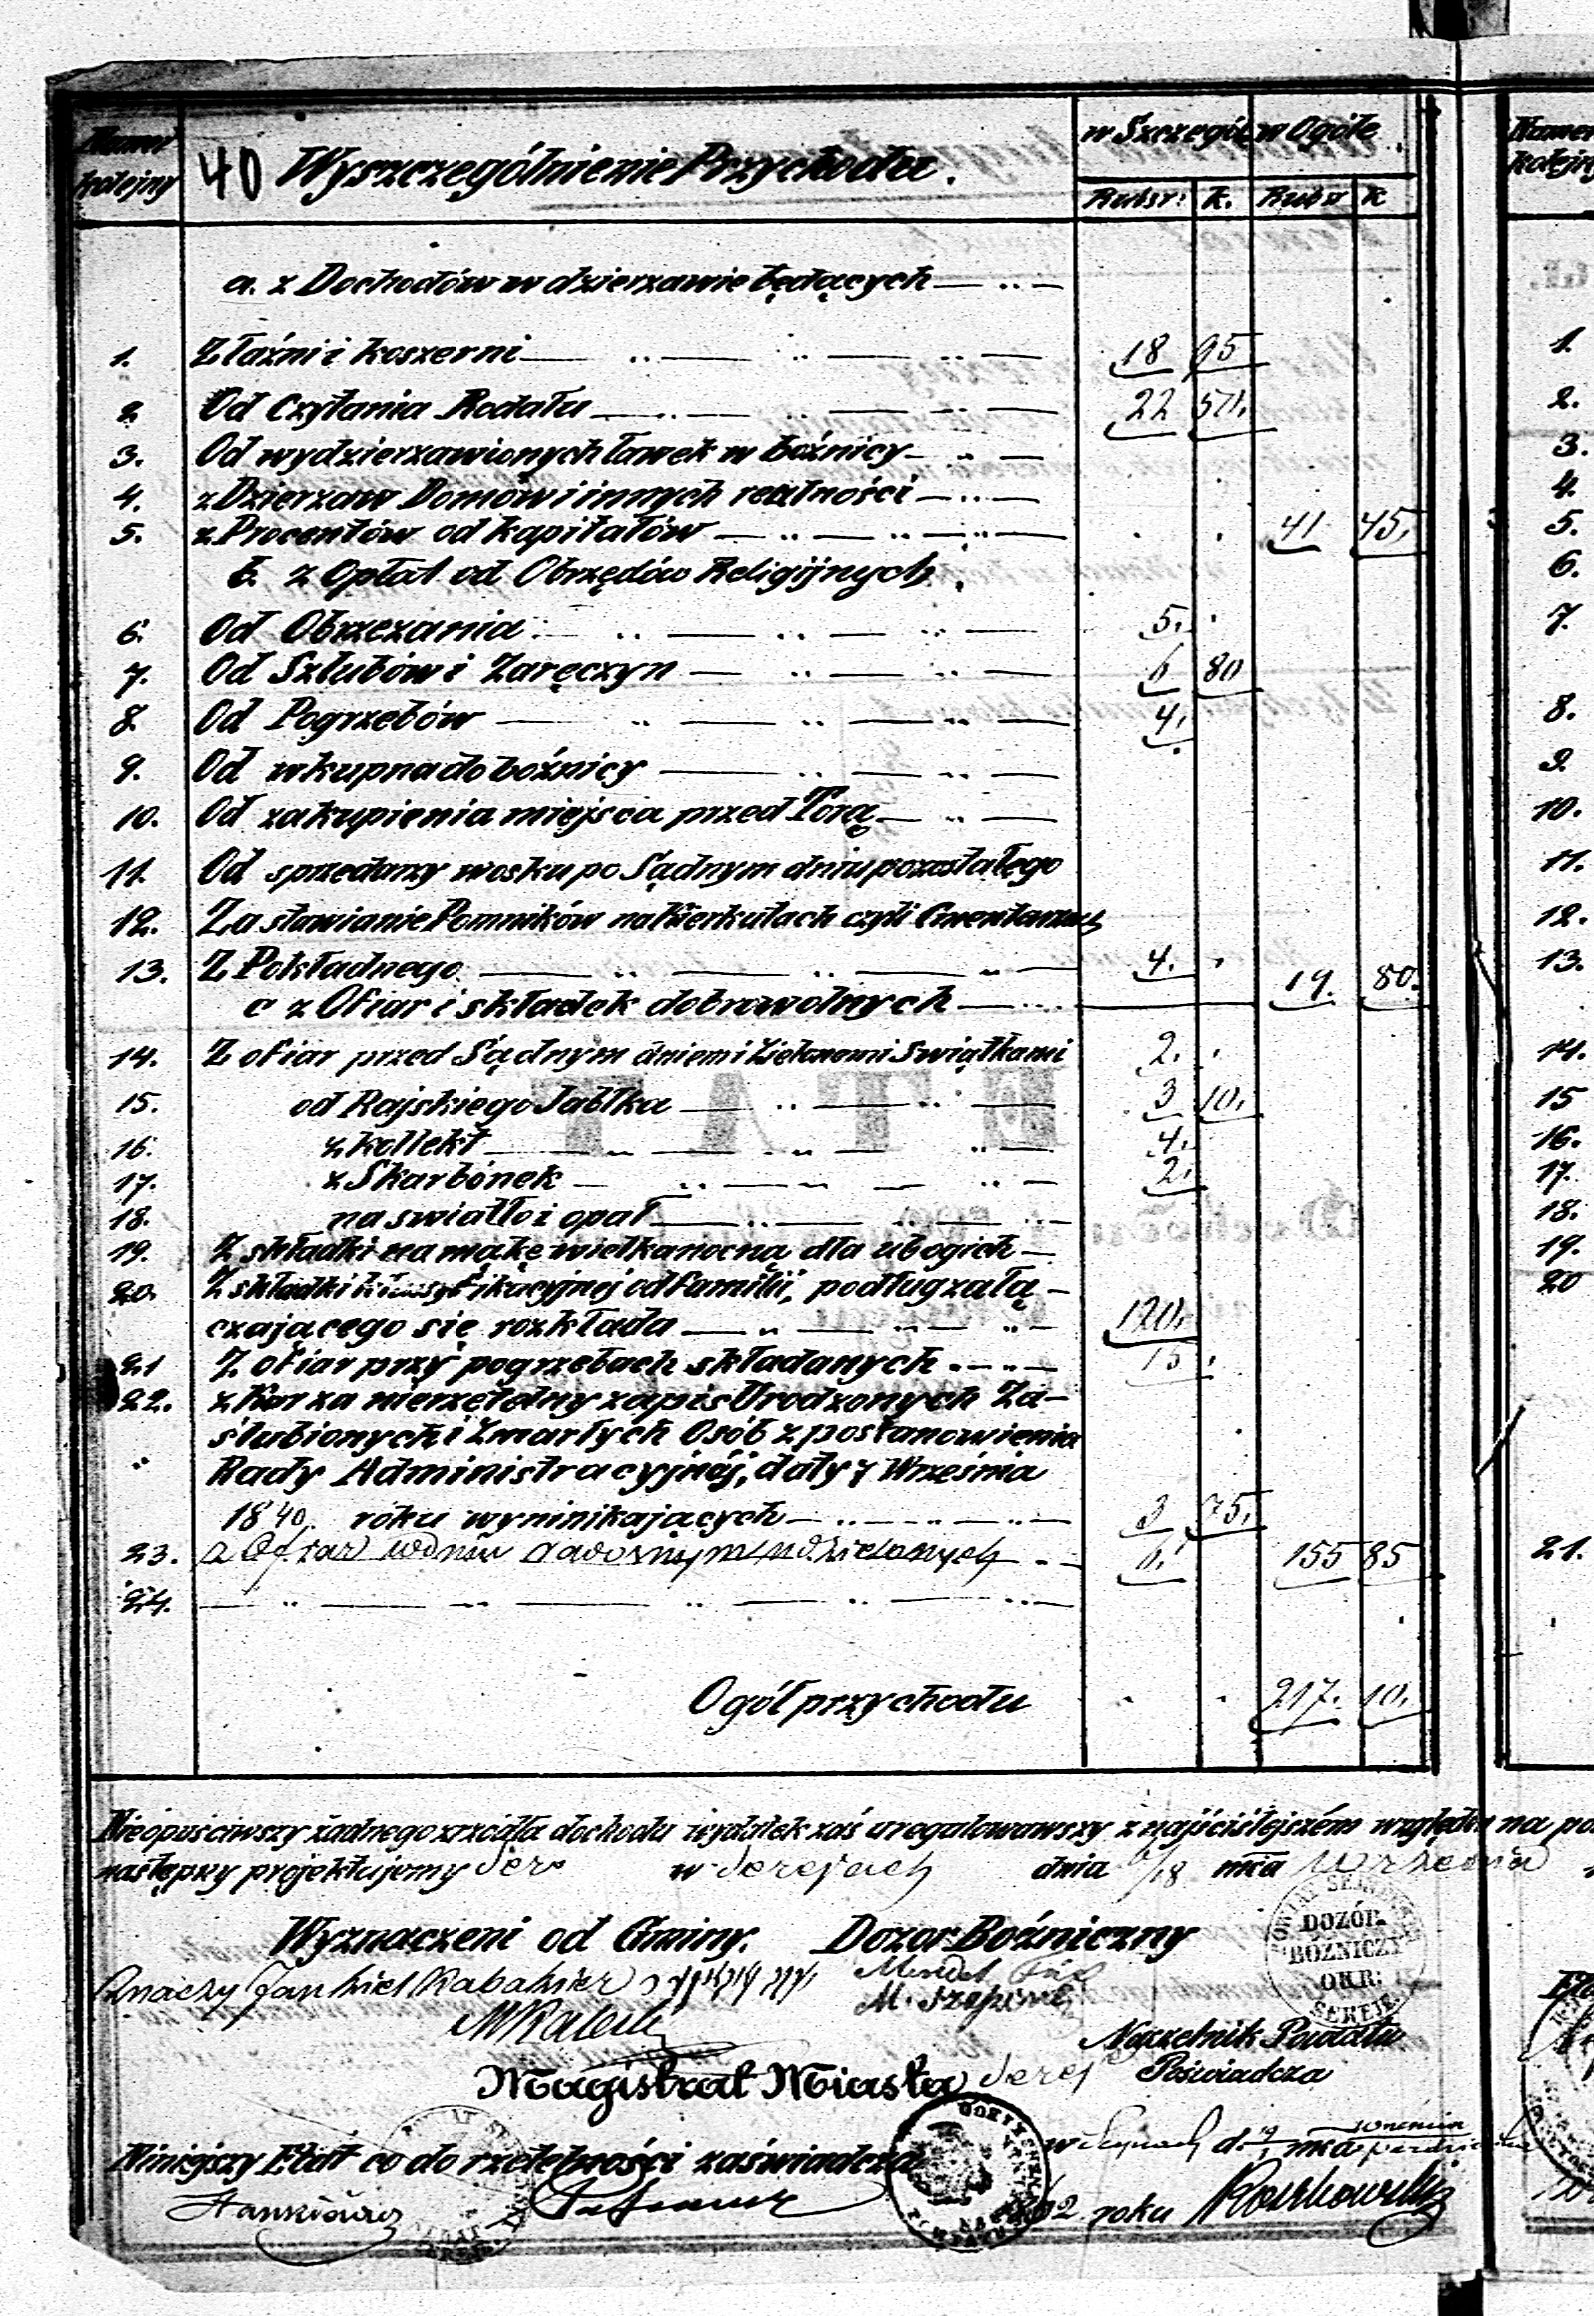 Numer kolejny
40 Wyszczególnienie Przychodu.
w Szczegól. w Ogóle
Rubsr: k. Rubsr k
a. z Dochodów w dzierzawie będących
1. Z łaźni i koszerni 18 95
2. Od Czytania Rodału 22 50.
3. Od wydzierzawionych ławek w bóźnicy
4. z Dzierzaw Domów i innych realności
5. z Procentów od kapitałów 41 45.
b. z Opłat od Obrzędów Religijnych.
6. Od Obrzezania 5.
7. Od Szlubów i Zaręczyn 6 80
8. Od Pogrzebów 4.
9. Od wkupna do boźnicy
10. Od zakupienia miejsca przed Torą
11. Od sprzedarzy wosku po Sądnym dniu pozostałego
12. Za stawianie Pomników na Kierkutach czyli Cmentarzach
13. Z Pokładnego 4. 19. 80.
c z Ofiar i składek dobrowolnych
14. Z ofiar przed Sądnym dniem i Zielonemi Swiątkami 2.
15. od Rajskiego Jabłka 3 10.
16. z kollekt 4.
17. z Skarbónek 2.
18. na swiatło i opał
19. Z składki na mąkę wielkanocną dla ubogich
20. Z składki klassyfikacyjnej od Familii, podług załą-
czającego się rozkłada 120.
21 Z ofiar przy pogrzebach składanych 15.
22. z Kar za nierzetelny zapis Urodzonych Za-
ślubionych i Zmarłych Osób z postanowienia
Rady Administracyjnéj, daty 7 Września
1840. roku wyninikających 3 75.
23. z Ofiar w dniu radosnym udzielonych 6. 155 85
24.
Ogół przychodu 217. 10.
Nieopuściwszy żadnego zrzódła dochodu wydatek zaś uregulowawszy z najściślejszém względu na
następny projektujemy w Serejach dnia 6/18 mca Września
Wyznaczeni od Gminy. Dozor Bóźniczny
DOZÓR BOZNICZY OKR: SEREJE.
Jankiel Kabaknier
Mendel
M.
Naczelnik Powiatu
Poświadcza
Magistrat Miasta Serej
Niniejszy Etat co do rzetelności zaświadcza
w d. mca
roku